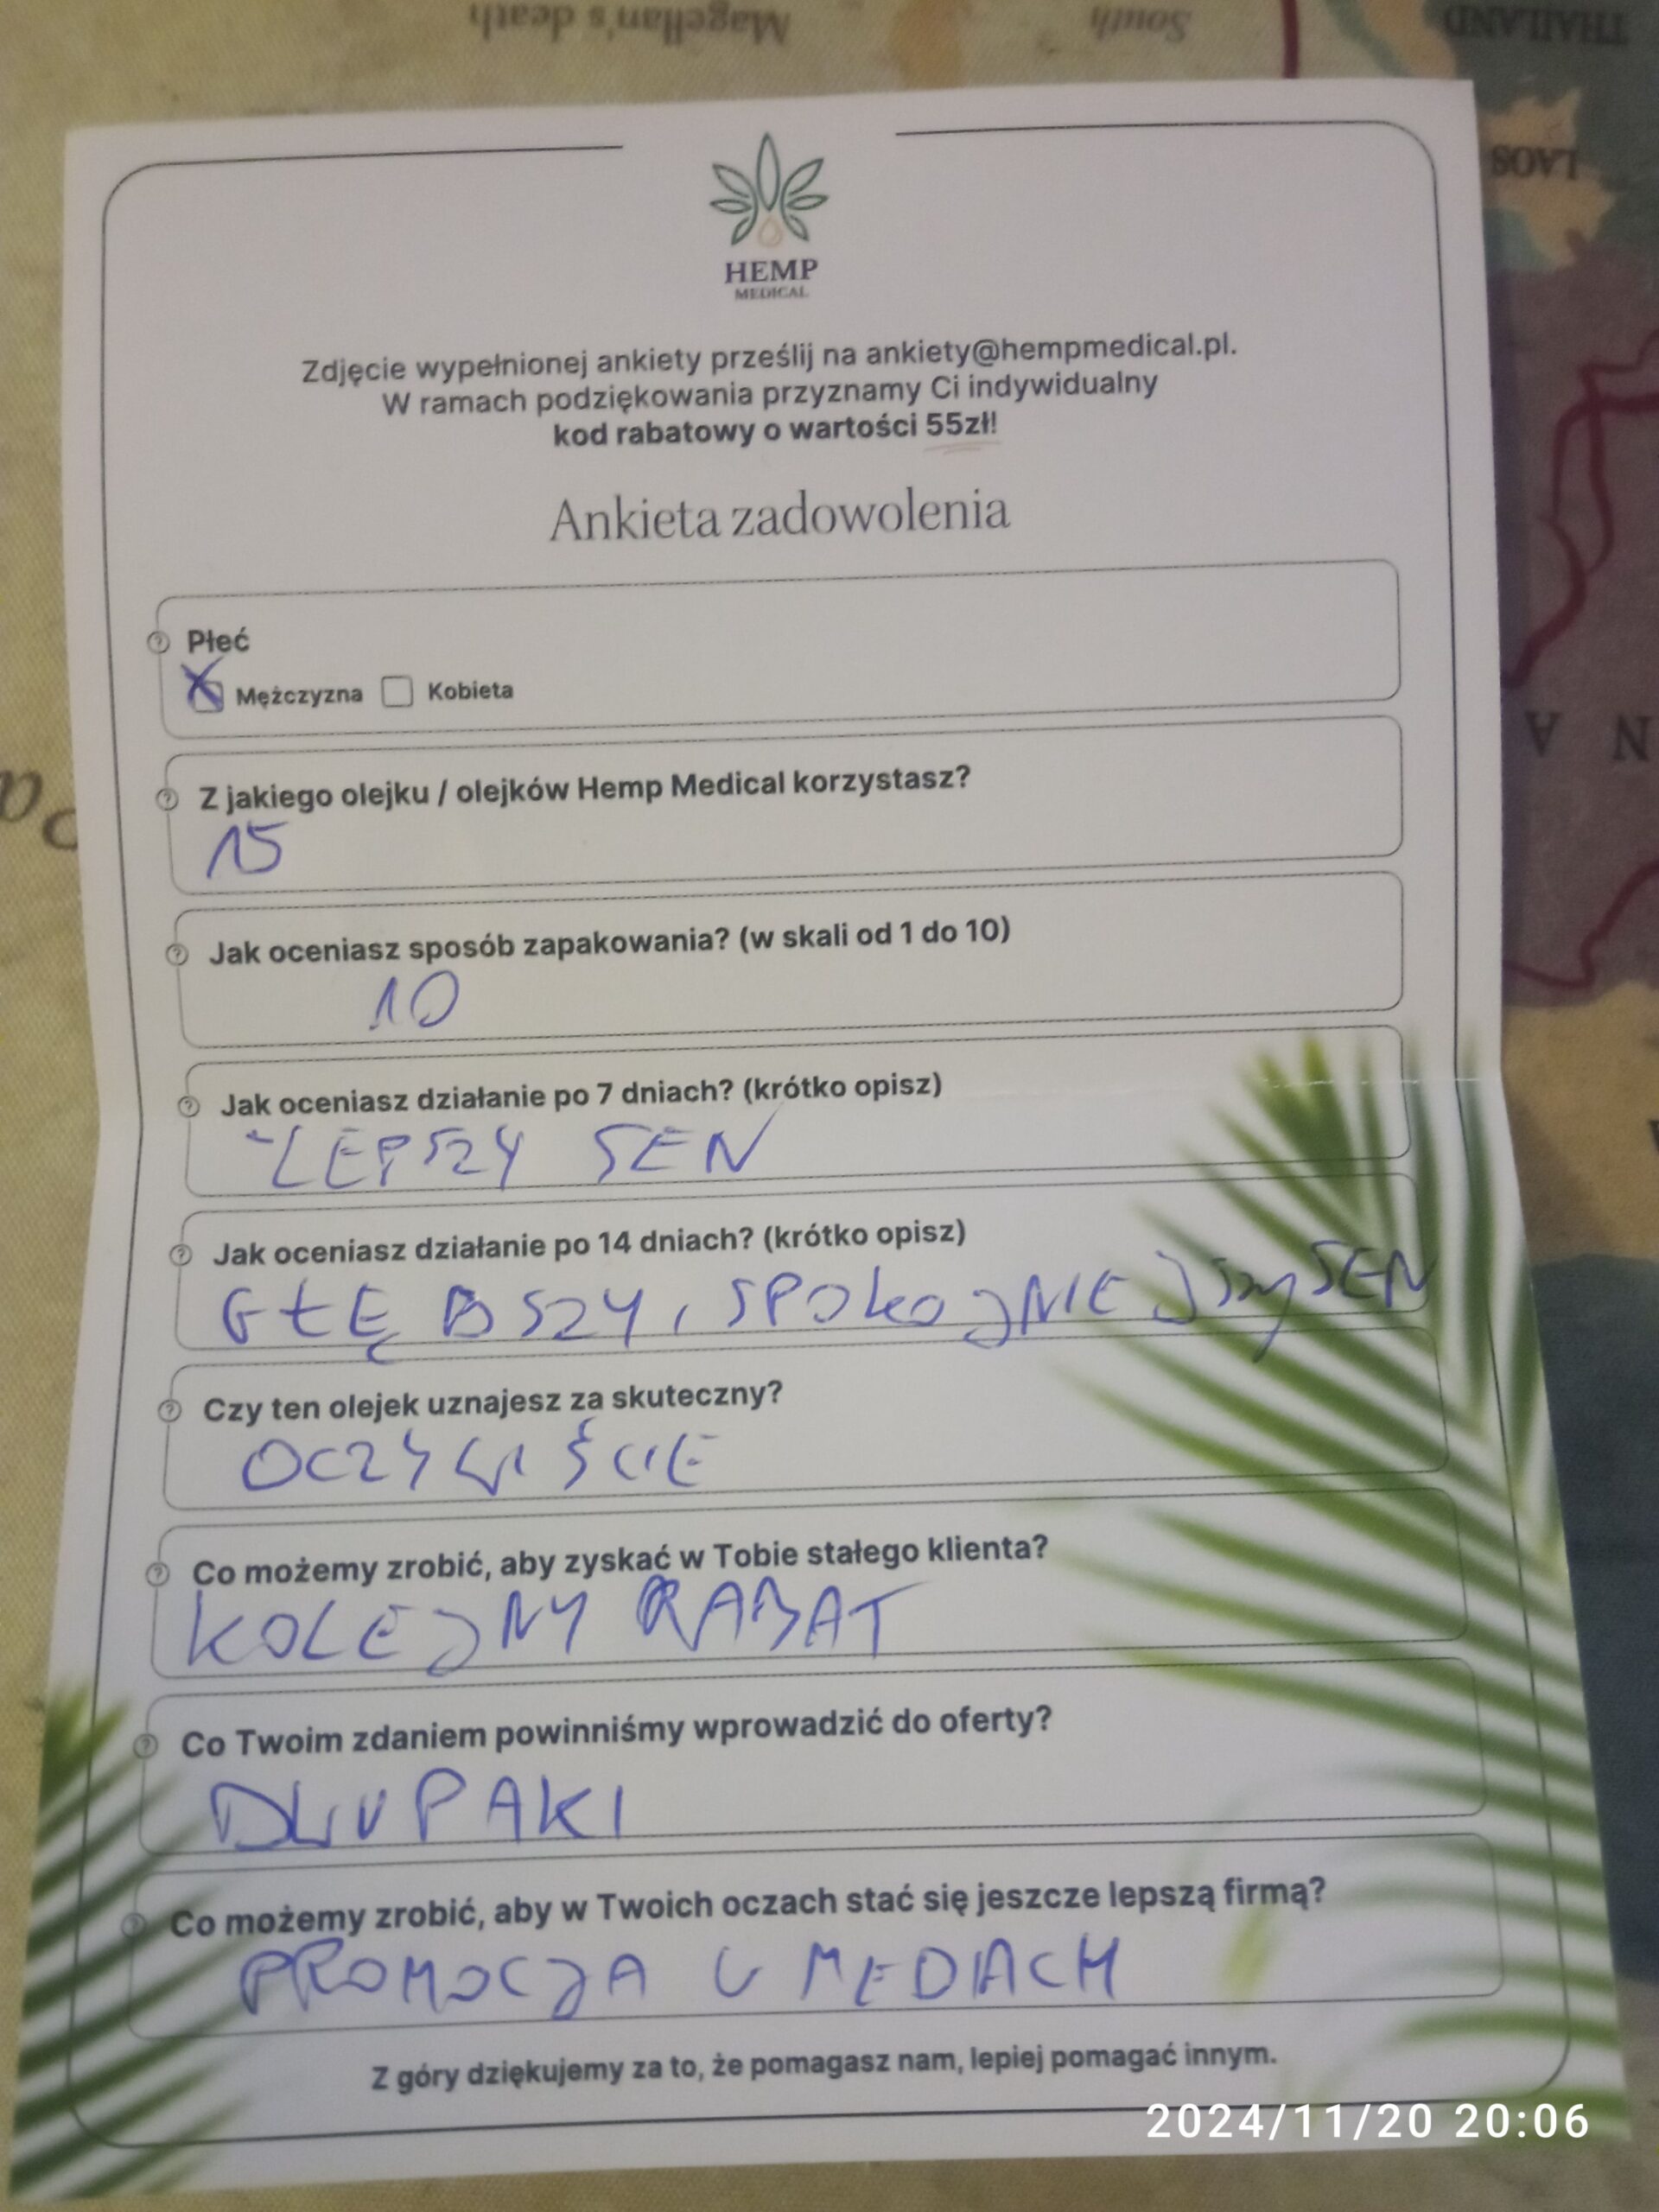 Magellan's death
South
THAILAND
LAOS
HEMP
MEDICAL
Zdjęcie wypełnionej ankiety prześlij na ankiety@hempmedical.pl.
W ramach podziękowania przyznamy Ci indywidualny
kod rabatowy o wartości 55zł!
Ankieta zadowolenia
Płeć
Mężczyzna Kobieta
Z jakiego olejku / olejków Hemp Medical korzystasz?
15
Jak oceniasz sposób zapakowania? (w skali od 1 do 10)
10
Jak oceniasz działanie po 7 dniach? (krótko opisz)
-LEPSZY SEN
Jak oceniasz działanie po 14 dniach? (krótko opisz)
GŁĘBSZY, SPOKOJNIEJSZY SEN
Czy ten olejek uznajesz za skuteczny?
OCZYWIŚCIE
Co możemy zrobić, aby zyskać w Tobie stałego klienta?
KOLEJNY RABAT
Co Twoim zdaniem powinniśmy wprowadzić do oferty?
DWUPAKI
Co możemy zrobić, aby w Twoich oczach stać się jeszcze lepszą firmą?
PROMOCJA W MEDIACH
Z góry dziękujemy za to, że pomagasz nam, lepiej pomagać innym.
2024/11/20 20:06